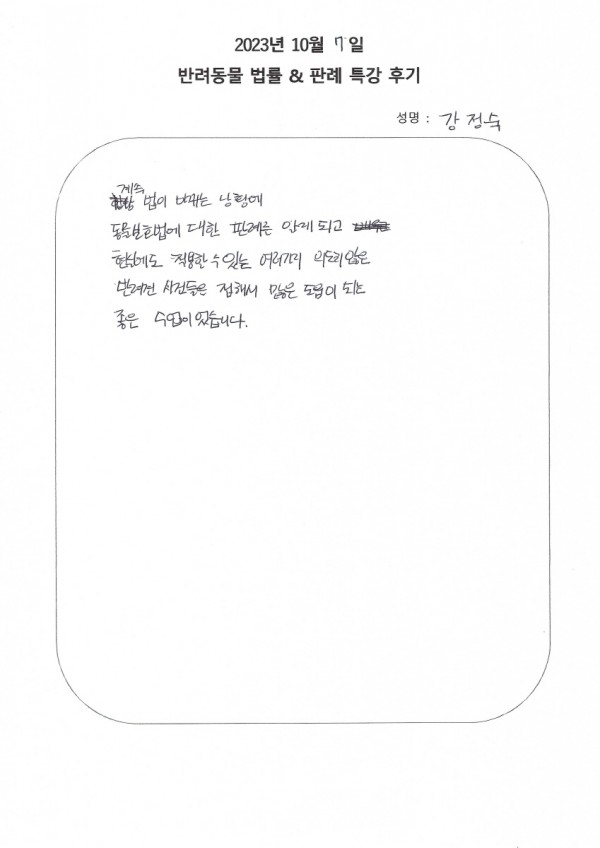 2023년 10월 7일
반려동물 법률 & 판례 특강 후기
성명 : 강정숙
계속
법이 바뀌는 상황에
동물보호법에 대한 판례를 알게 되고
현실에도 적용할 수 있는 여러가지
반려견 사건들을 접해서 많은 도움이 되는
좋은 수업이었습니다.